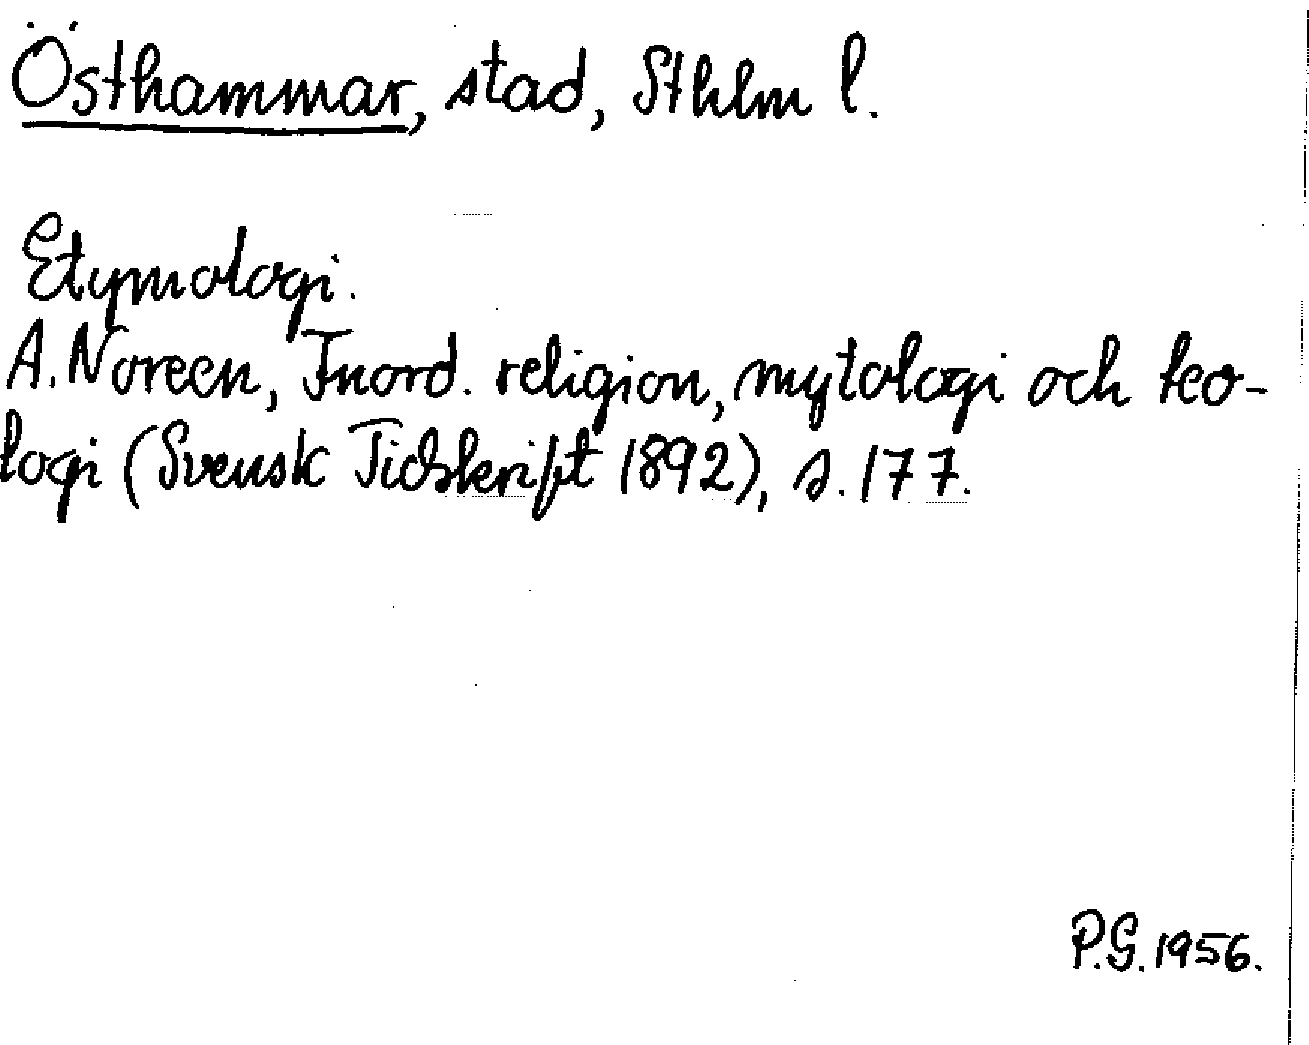 Östhammar, stad, Sthlm l.
Etymologi.
A. Noreen, Fnord. religion, mytologi och teo-
logi (Svensk Tidskrift 1892), s. 177.
P.G. 1956.